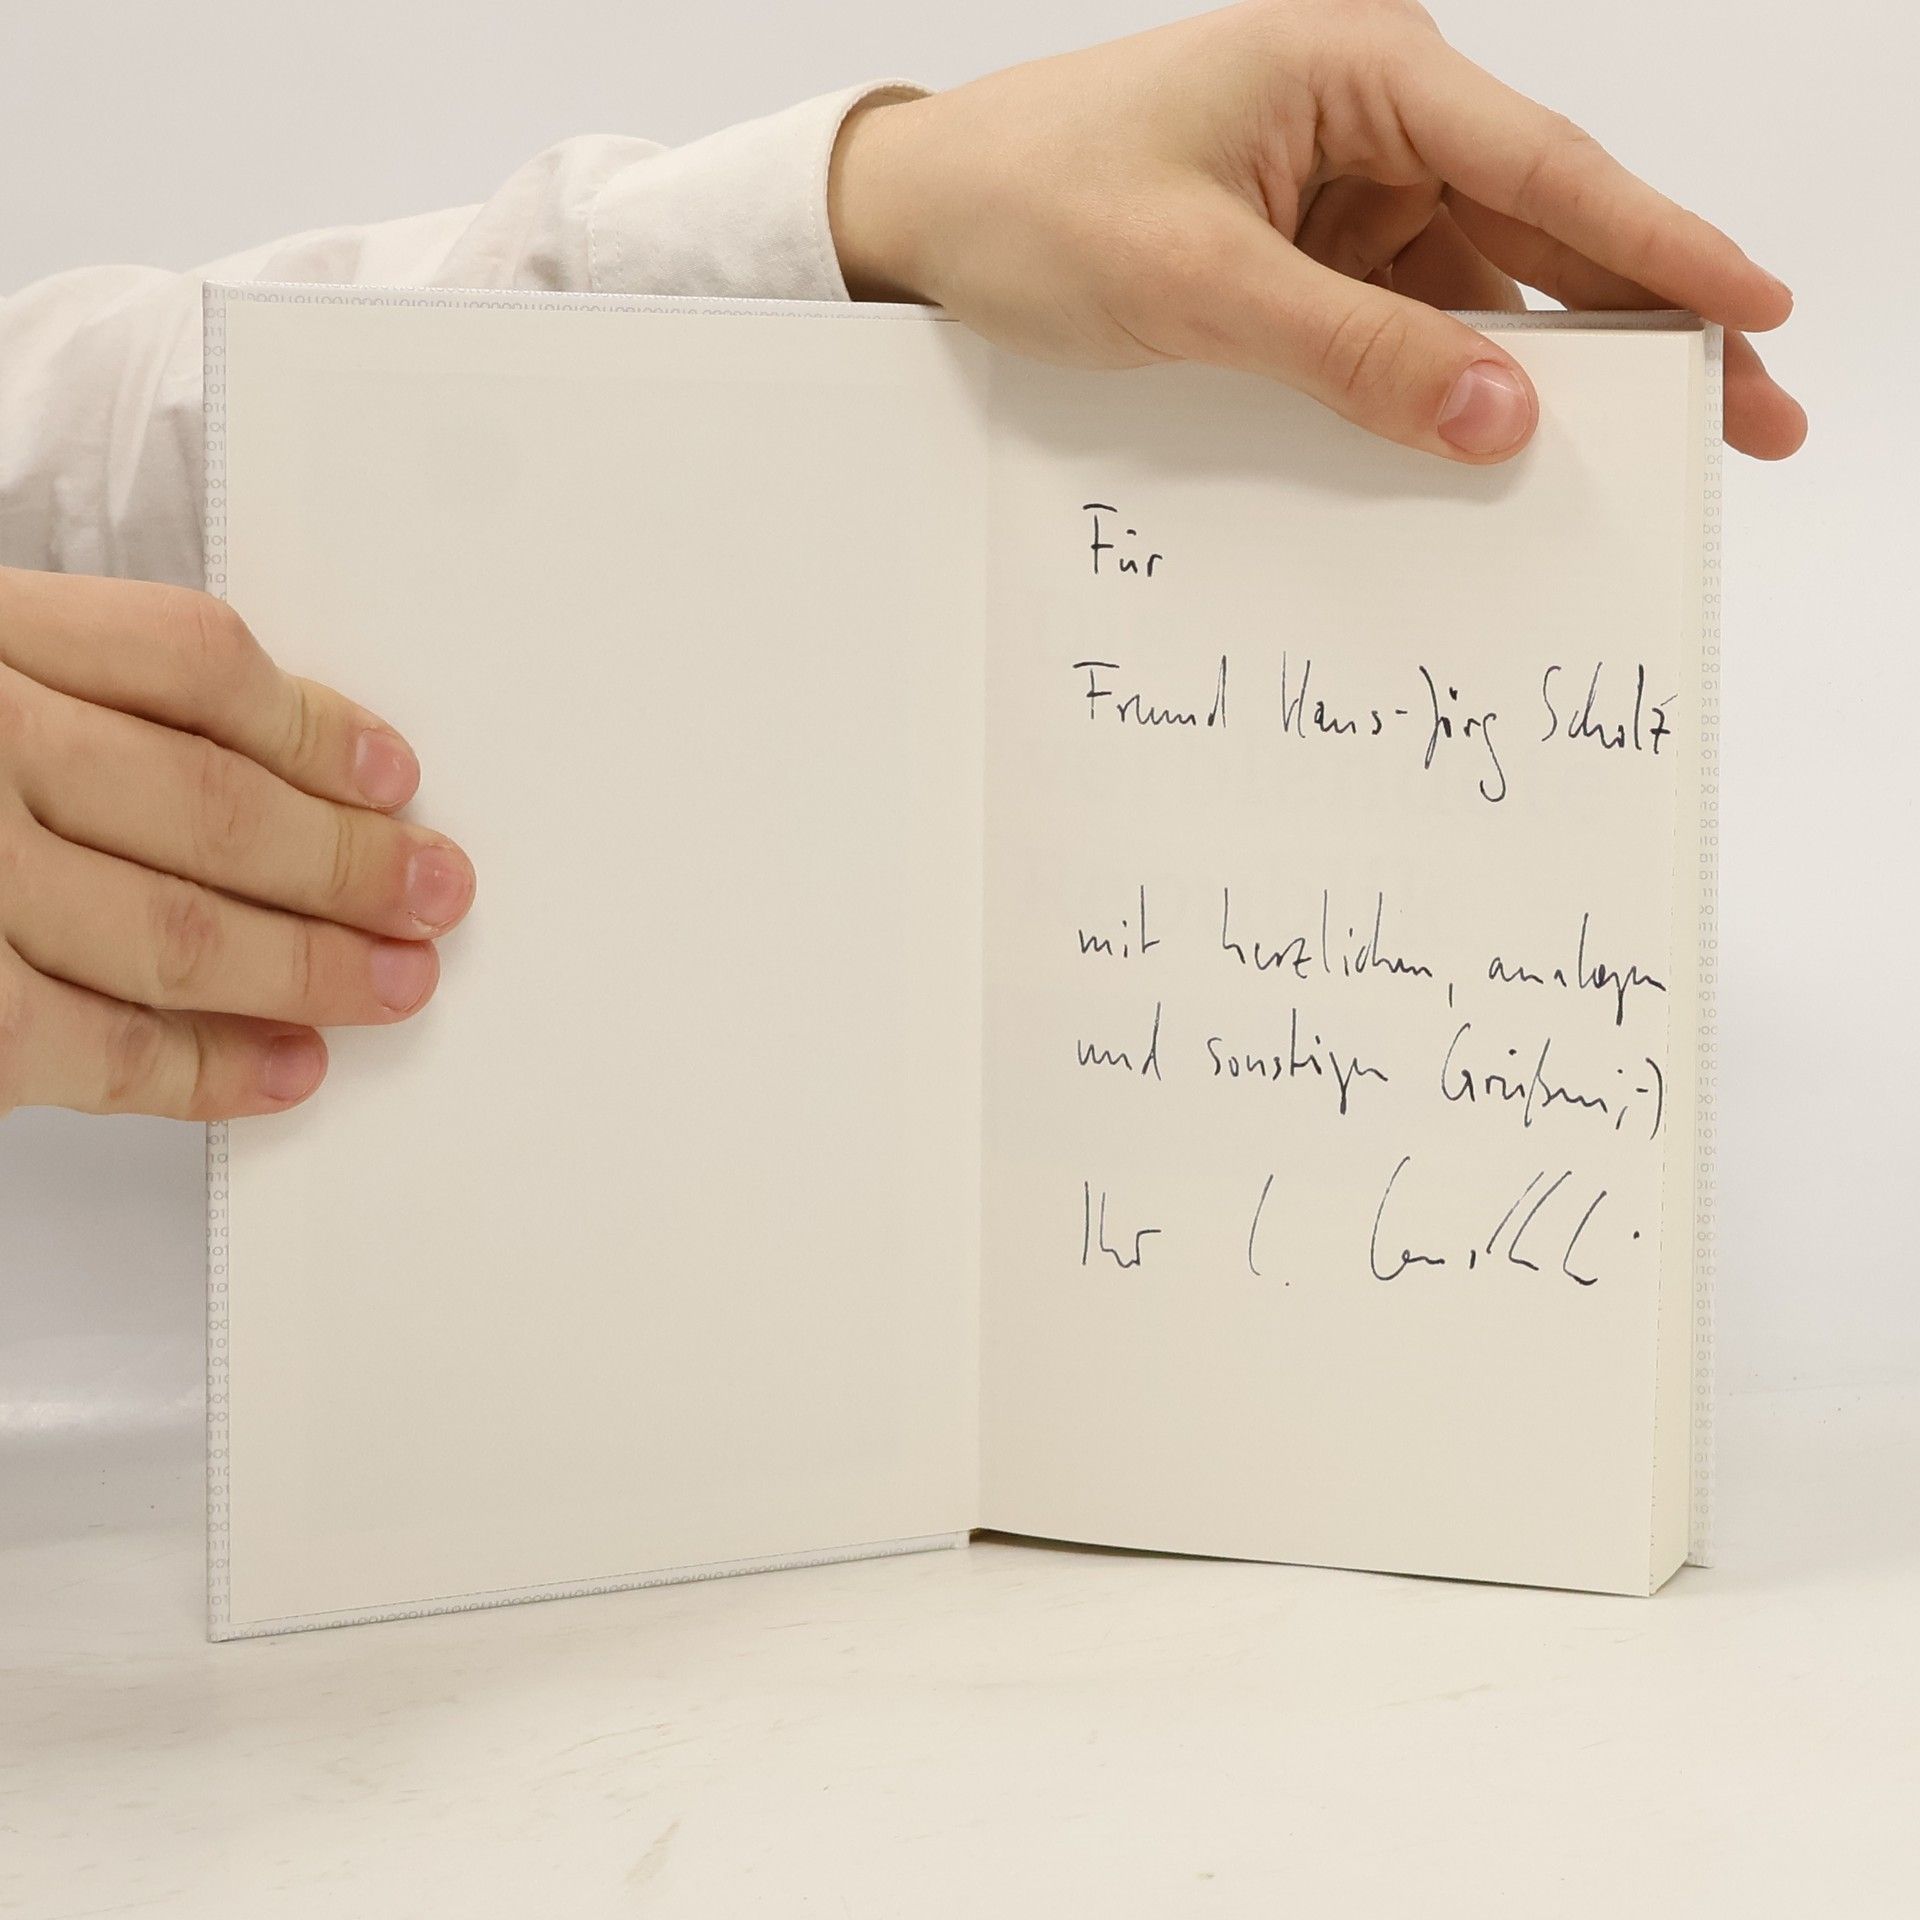 Für
Freund Hans-Jörg Scholz
mit herzlichen, analogen
und sonstigen Grüßen ;-)
Ihr